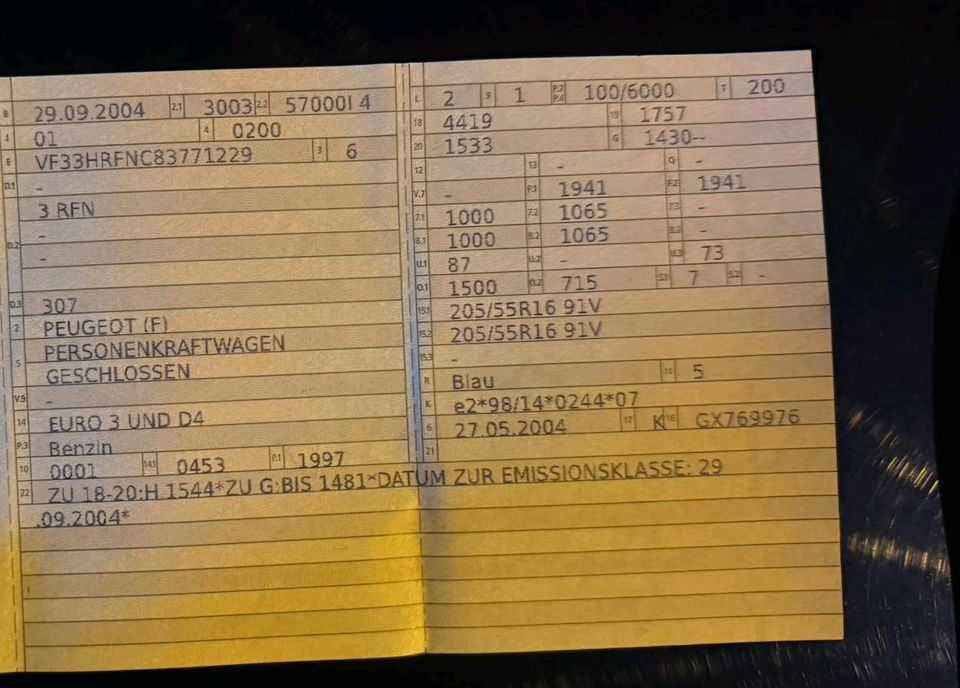 B 29.09.2004 2.1 3003 2.2 57000I 4
J 01 4 0200
E VF33HRFNC83771229 3 6
D.1 -
3 RFN
D.2 -
-
D.3 307
2 PEUGEOT (F)
5 PERSONENKRAFTWAGEN
GESCHLOSSEN
V.9 -
14 EURO 3 UND D4
P.3 Benzin
10 0001 14.1 0453 P.1 1997
L 2 9 1 P.2 P.4 100/6000 T 200
18 4419 19 1757
20 1533 G 1430--
12 13 - Q -
V.7 - F.1 1941 F.2 1941
7.1 1000 7.2 1065 7.3 -
8.1 1000 8.2 1065 8.3 -
U.1 87 U.2 - U.3 73
O.1 1500 O.2 715 S.1 7 S.2 -
15.1 205/55R16 91V
15.2 205/55R16 91V
15.3 -
R Blau 11 5
K e2*98/14*0244*07
6 27.05.2004 17 K 16 GX769976
21
22 ZU 18-20:H.1544*ZU G:BIS 1481*DATUM ZUR EMISSIONSKLASSE: 29
.09.2004*